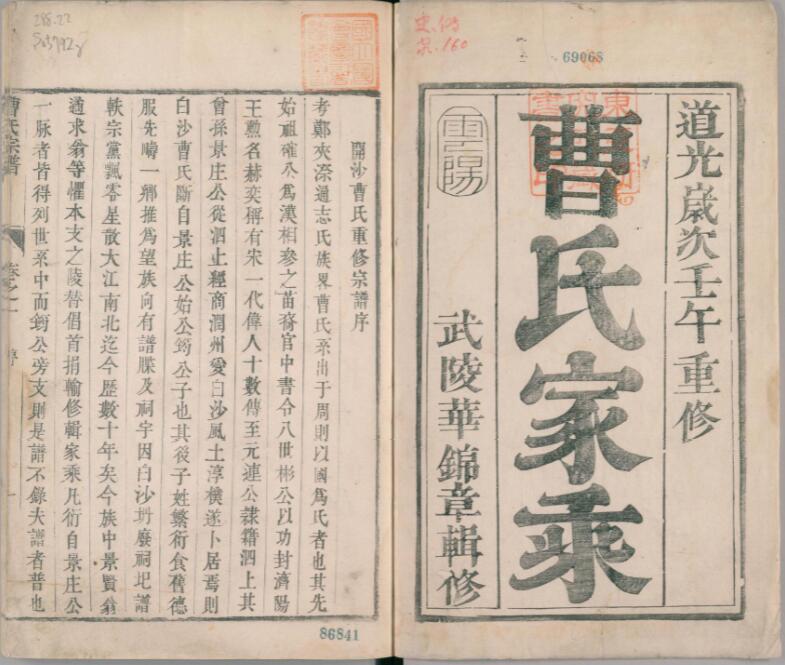 道光歲次壬午重修
曹氏家乘
武陵華錦章輯修
雲陽
69068
史.傳
宗.160
開沙曹氏重修宗譜序
考鄭夾漈通志氏族畧曹氏系出于周則以國爲氏者也其先
始祖確公爲漢相參之苗裔官中書令八世彬公以功封濟陽
王勲名赫奕稱有宋一代偉人十數傳至元連公隸籍泗上其
曾孫景庄公從泗上經商潤州愛白沙風土淳樸遂卜居焉則
白沙曹氏斷自景庄公始公筠公子也其後子姓繁衍食舊德
服先疇一鄉推爲望族向有譜牒及祠宇因白沙坍廢祠圯譜
軼宗黨飄零星散大江南北迄今歷數十年矣今族中景賢翁
過求翁等懼本支之陵替倡首捐輸修輯家乘凡衍自景庄公
一脉者皆得列世系中而筠公旁支則是譜不錄夫譜者普也
曹氏宗譜
卷之一
序
一
86841